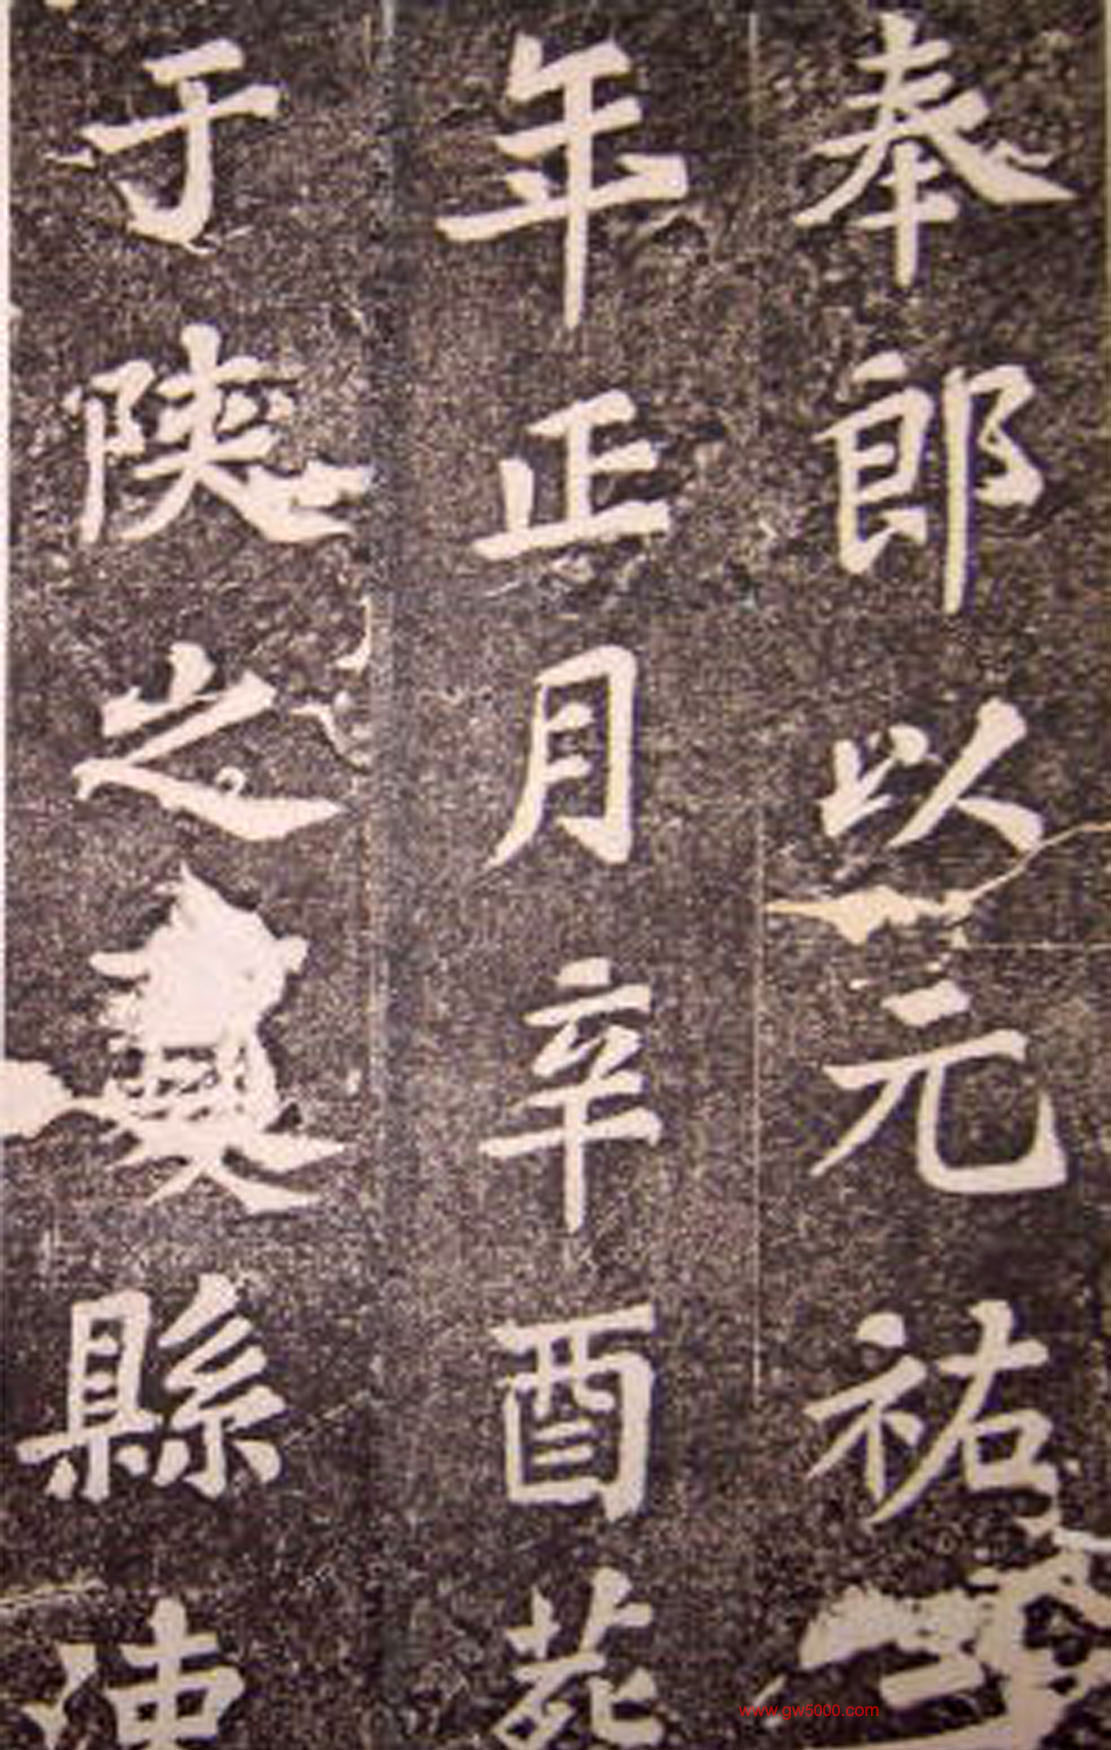 奉郎以元祐
年正月辛酉葬
于陝之夏縣涑
www.gw5000.com